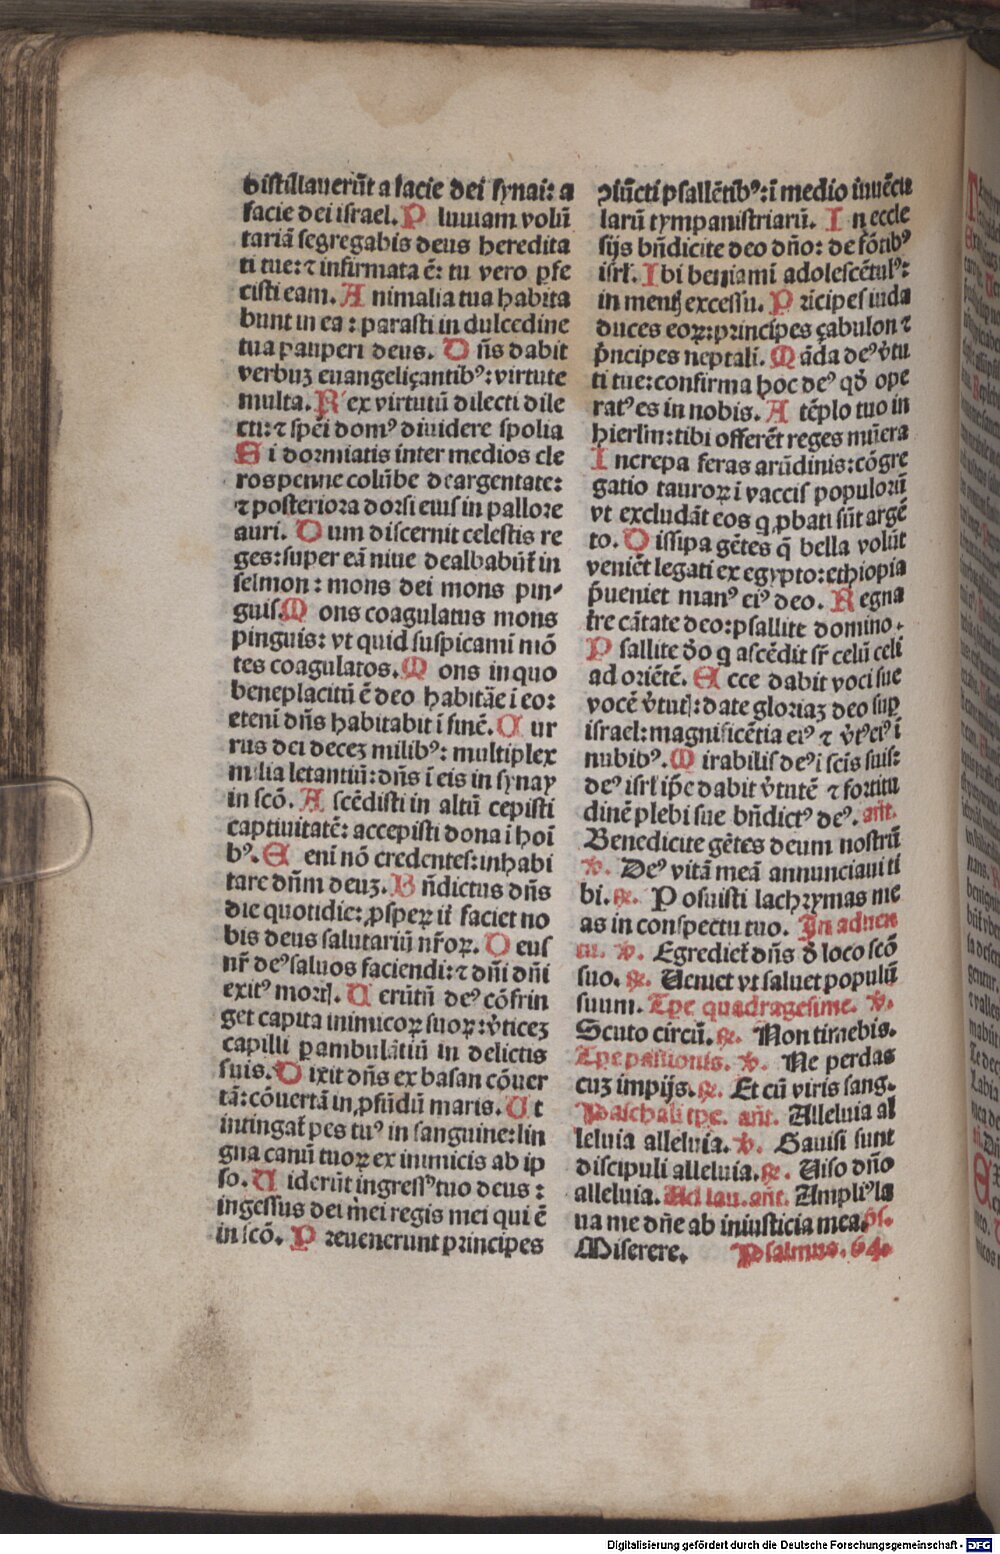 distillauerūt a facie dei synai: a
facie dei israel. P luuiam volū
tariā segregabis deus heredita
ti tue: ⁊ infirmata ē: tu vero ꝑfe
cisti eam. A nimalia tua habita
bunt in ea: parasti in dulcedine
tua pauperi deus. D ñs dabit
verbuꝫ euangeliçantibꝰ: virtute
multa. R ex virtutū dilecti dile
cti: ⁊ spēi domꝰ diuidere spolia
S i dormiatis inter medios cle
ros penne colūbe deargentate:
⁊ posteriora dorsi eius in pallore
auri. D um discernit celestis re
ges: super eā niue dealbabūt̄ in
selmon: mons dei mons pin⸗
guis. M ons coagulatus mons
pinguis: vt quid suspicamī mō
tes coagulatos. M ons in quo
beneplacitū ē deo habitāe ī eo:
etenī dñs habitabit ī finē. C ur
rus dei deceꝫ milibꝰ: multiplex
milia letantiū: dñs ī eis in synay
in scō. A scēdisti in altū cepisti
captiuitatē: accepisti dona ī hoī
bꝰ. E enī nō credentes: inhabi
tare dñm deuꝫ. B ñdictus dñs
die quotidie: ꝓsperꝝ it̄ faciet no
bis deus salutariū nr̄oꝝ. D eus
nr̄ deꝰ saluos faciendi: ⁊ dñi dñi
exitꝰ mortꝭ. U erūtñ deꝰ cōfrin
get capita inimicoꝝ suoꝝ: v̓ticeꝫ
capilli ꝑambulātiū in delictis
suis. D ixit dñs ex basan cōuer
tā: cōuertā in ꝓfūdū maris. U t
intingat̄ pes tuꝰ in sanguine: lin
gua canū tuoꝝ ex inimicis ab ip
so. U iderūt ingressꝰ tuo deus:
ingessus dei mei regis mei qui ē
in scō. P reuenerunt principes
ꝯiūcti psallētibꝰ: ī medio iuuēcu
larū tympanistriarū. I n eccle
sijs bñdicite deo dño: de fōtibꝰ
isrl̄. I bi beniamī adolescētulꝰ:
in mentꝭ excessu. P rīcipes iuda
duces eoꝝ: principes çabulon ⁊
p̄ncipes neptali. M āda deꝰ v̓tu
ti tue: confirma hoc deꝰ qđ ope
ratꝰ es in nobis. A tēplo tuo in
hierl̄m: tibi offerēt reges mūera
I ncrepa feras arūdinis: cōgre
gatio tauroꝝ ī vaccis populoꝝ
vt excludāt eos q ꝓbati sūt argē
to. D issipa gētes q̄ bella volūt
veniēt legati ex egypto: ethiopia
p̄ueniet manꝰ eiꝰ deo. R egna
tre cātate deo: psallite domino.
P sallite đo q ascēdit sr̄ celū celi
ad oriētē. E cce dabit voci sue
vocē v̓tutꝭ: date gloriaꝫ deo suꝑ
israel: magnificētia eiꝰ ⁊ v̓tꝰ eiꝰ ī
nubibꝰ. M irabilis deꝰ ī scis suis:
deꝰ isrl̄ ip̄e dabit v̓tutē ⁊ fortitu
dinē plebi sue bñdictꝰ deꝰ. añt.
Benedicite gētes deum nostrū
℣. Deꝰ vitā meā annunciaui ti
bi. ℟. Posuisti lachrymas me
as in conspectu tuo. In aduen
tu. ℣. Egrediet̄ dñs đ loco scō
suo. ℟. Ueniet vt saluet populū
suum. Tp̄e quadragesime. ℣.
Scuto circū. ℟. Non timebis.
Tp̄e passionis. ℣. Ne perdas
cuꝫ impijs. ℟. Et cū viris sang.
Paschali tp̄e. añt. Alleluia al
leluia alleluia. ℣. Gauisi sunt
discipuli alleluia. ℟. Uiso dño
alleluia. Ad lau. añt. Ampliꝰ la
ua me dñe ab iniusticia mea. ps.
Miserere. Psalmus. 64.
Digitalisierung gefördert durch die Deutsche Forschungsgemeinschaft - DFG